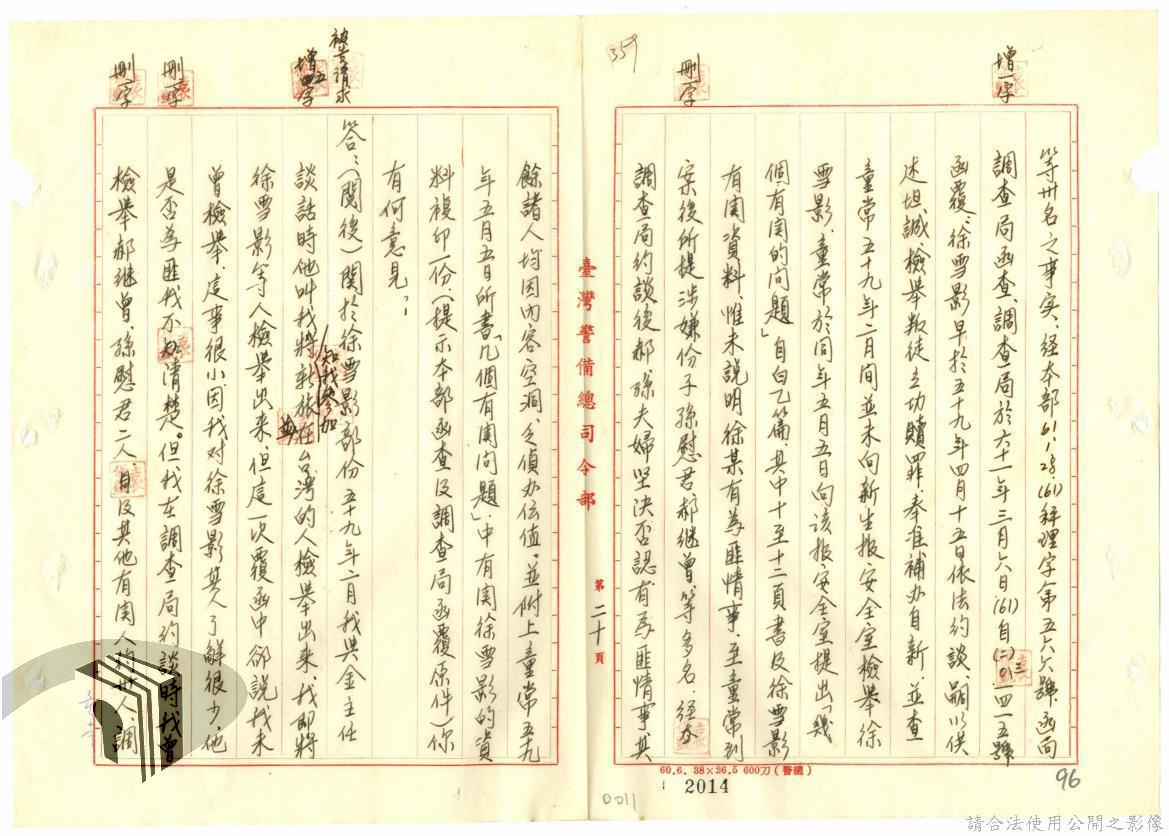 增一字
刪一字
359
等卅名之事实、經本部61.1.28.(61)秤理字第五六六號函向
調查局函查、調查局於六十一年三月六日(61)自(二)三四一五號
函覆:徐雪影早於五十九年四月十五日依法約談、嗣以供
述坦誠檢举叛徒立功贖罪、奉准補办自新、並查
童常五十九年二月間並未向新生报安全室檢舉徐
雪影、童常於同年五月五日向该报安全室提出「幾
個有関的问題」自白乙篇、其中十至十二頁書及徐雪影
有関資料、惟未說明徐某有為匪情事、至童常到
案後所提涉嫌份子孫慰君郝继曾、等多名、经本
調查局約談後郝孫夫婦坚決否認有為匪情事其
臺灣警備總司令部
第二十頁
被告請求
增五字
刪一字
刪一字
餘諸人均因內容空洞、乏偵办価值。並附上童常五九
年五月五日所書「几個有関问題」中有関徐雪影的資
料複印一份、(提示本部函查及調查局函覆原件)你
有何意見?
答:(閱後)関於徐雪影部份五十九年二月我與金主任
談話時他叫我將知我參加新旅在台灣的人檢举出來、我即將
徐雪影等人檢举出來、但這一次覆函中卻說我未
曾檢举、這事很小因我对徐雪影其人了解很少、他
是否為匪我不清楚。但我在調查局約談時我曾
檢舉郝继曾、孫慰君二人、及其他有関人約卅人、調
60.6. 38×26.5 600刀(警總)
2014
0011
96
請合法使用公開之影像